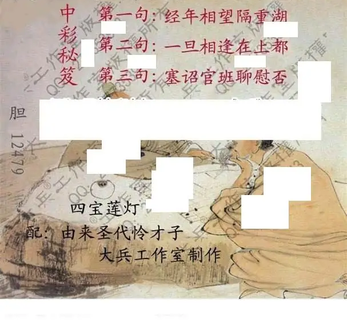 中彩秘笈
第一句:经年相望隔重湖
第二句:一旦相逢在上都
第三句:塞诏官班聊慰否
胆 12479
四宝莲灯
配:由来圣代怜才子
大兵工作室制作